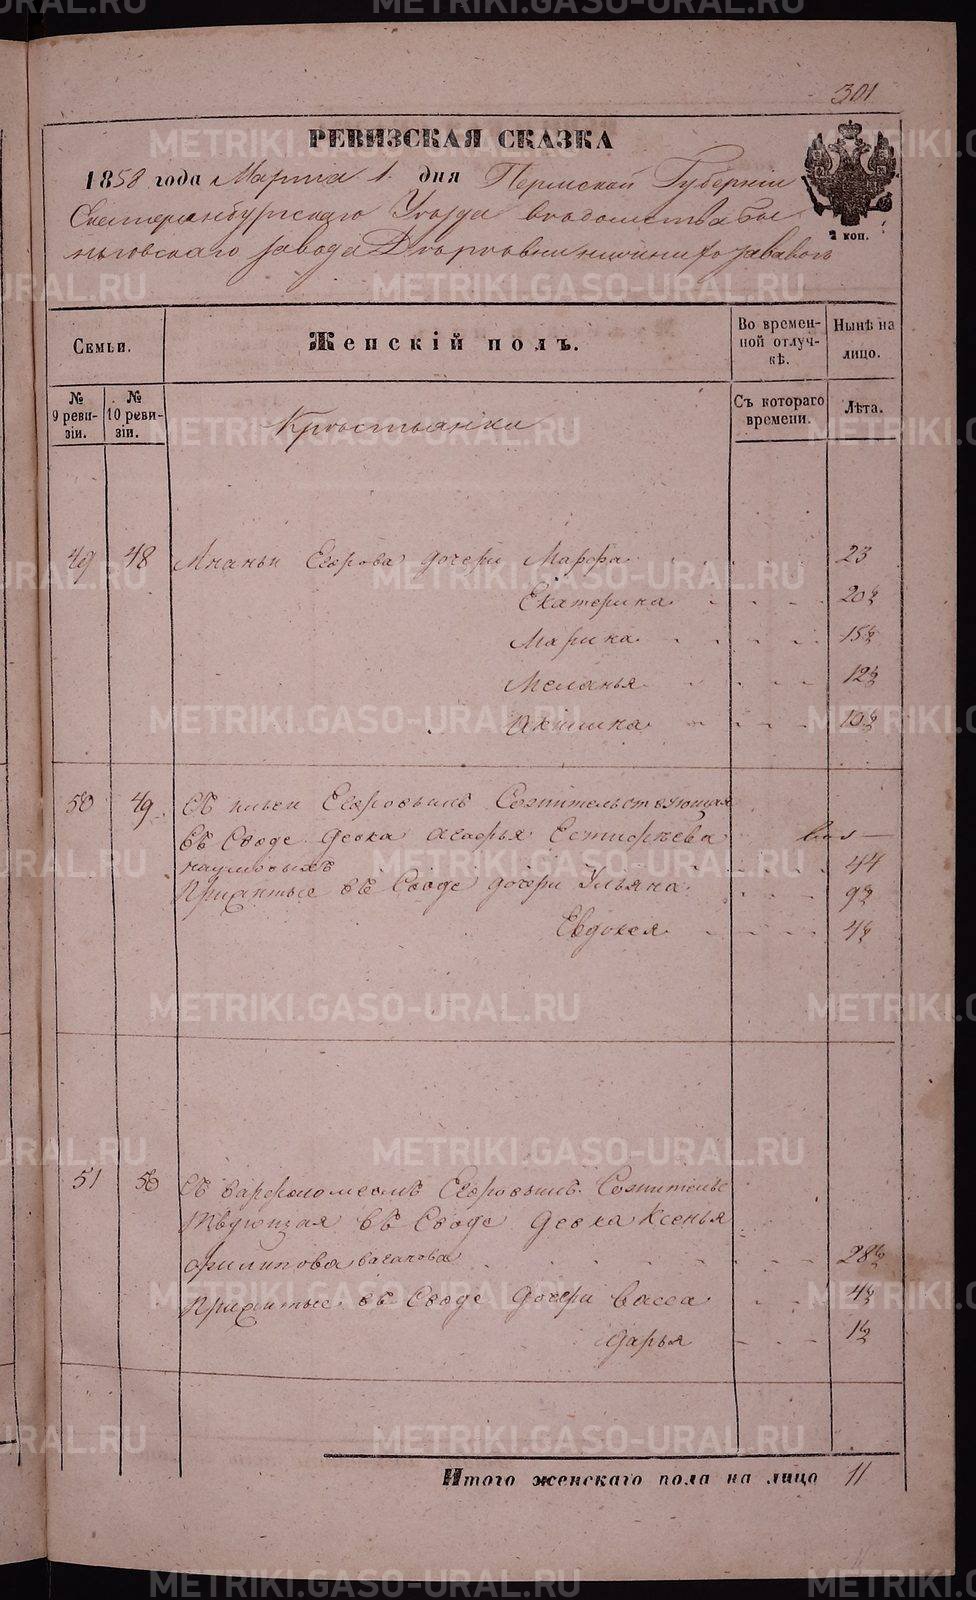 301
РЕВИЗСКАЯ СКАЗКА
1858 года Марта 1. дня Пермской Губерніи
Екатеринбургскаго Уѣзда вѣдомства Бы-
ньговскаго завода
2 коп.
Семьи.
Женскій полъ.
Во времен-
ной отлуч-
кѣ.
Нынѣ на
лицо.
№
9 реви-
зіи.
№
10 реви-
зіи.
Крестьянки
Съ котораго
времени.
Лѣта.
49 48 Ананьи Егорова дочери Марфа 23
Екатерина 20½
Марина 15½
Меланья 12½
Акилина 10½
50 49 Съ Егоровымъ Сожительствующая
въ Своде девка Агафья Естифѣева
наумовыхъ 44
Прижитые въ Своде дочери Ульяна 9½
Евдокея 4½
51 50 Съ варфоломеомъ Егоровымъ Сожительс
твующая въ Своде девка Ксенья
филипова 28½
Прижитые въ Своде дочери васса 4½
дарья 1½
Итого женскаго пола на лицо 11
METRIKI.GASO-URAL.RU